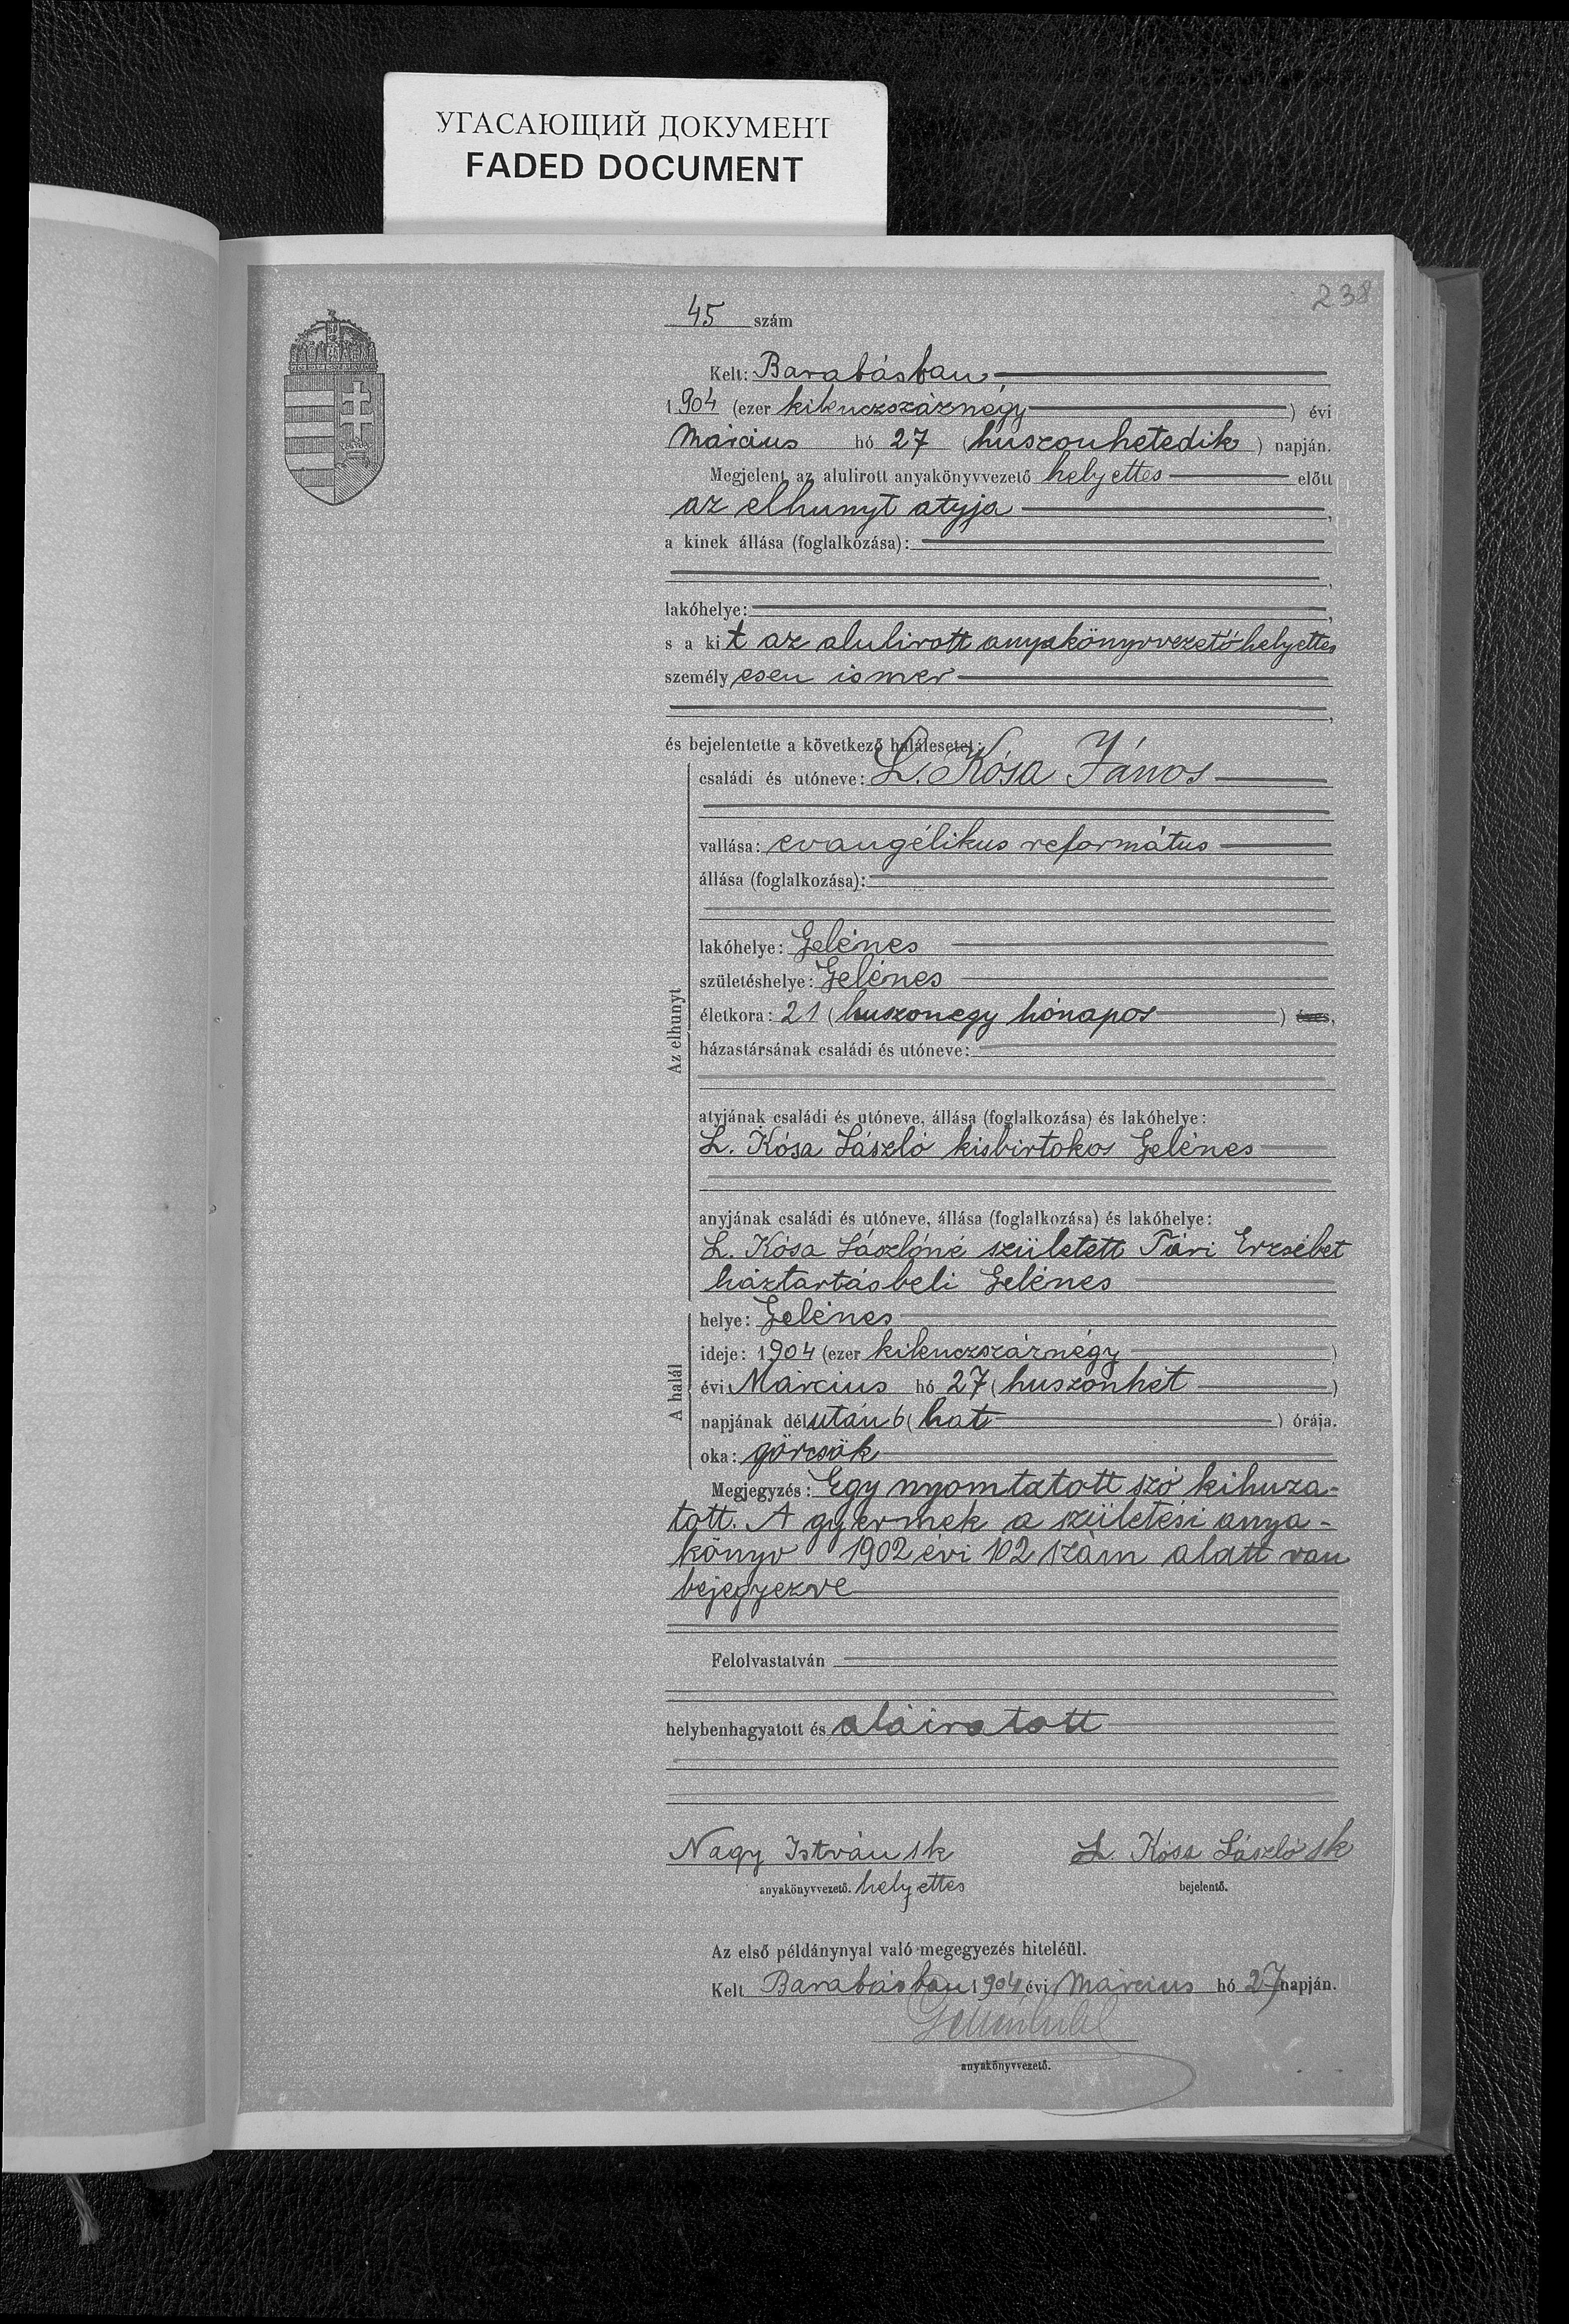 УГАСАЮЩИЙ ДОКУМЕНТ
FADED DOCUMENT
238
45 szám
Kelt: Barabásban,
1904 (ezer kilenczszáznégy) évi
Március hó 27 (huszonhetedik) napján.
Megjelent az alulirott anyakönyvvezető helyettes előtt
az elhunyt atyja,
a kinek állása (foglalkozása):
lakóhelye:
s a kit az alulirott anyakönyvvezetőhelyettes
személyesen ismer
és bejelentette a következő halálesetet:
Az elhunyt
családi és utóneve: L. Kósa János
vallása: evangélikus református
állása (foglalkozása):
lakóhelye: Gelénes
születéshelye: Gelénes
életkora: 21 (huszonegy hónapos) éves,
házastársának családi és utóneve:
atyjának családi és utóneve, állása (foglalkozása) és lakóhelye:
L. Kósa László kisbirtokos Gelénes
anyjának családi és utóneve, állása (foglalkozása) és lakóhelye:
L. Kósa Lászlóné született Erzsébet
háztartásbeli Gelénes
A halál
helye: Gelénes
ideje: 1904 (ezer kilenczszáznégy)
évi Március hó 27 (huszonhét)
napjának délután 6 (hat) órája.
oka: görcsök
Megjegyzés: Egy nyomtatott szó kihuza-
tott. A gyermek a születési anya-
könyv 1902 évi 102 szám alatt van
bejegyezve
Felolvastatván
helybenhagyatott és aláiratott
Nagy István sk L. Kósa László sk
anyakönyvvezető. helyettes bejelentő.
Az első példánynyal való megegyezés hiteléül.
Kelt Barabásban 1904 évi Március hó 27 napján.
anyakönyvvezető.